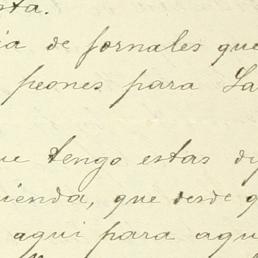 sta.
ia de jornales que
peones para La
ue tengo estas di
ienda, que desde q
aqui para aqu